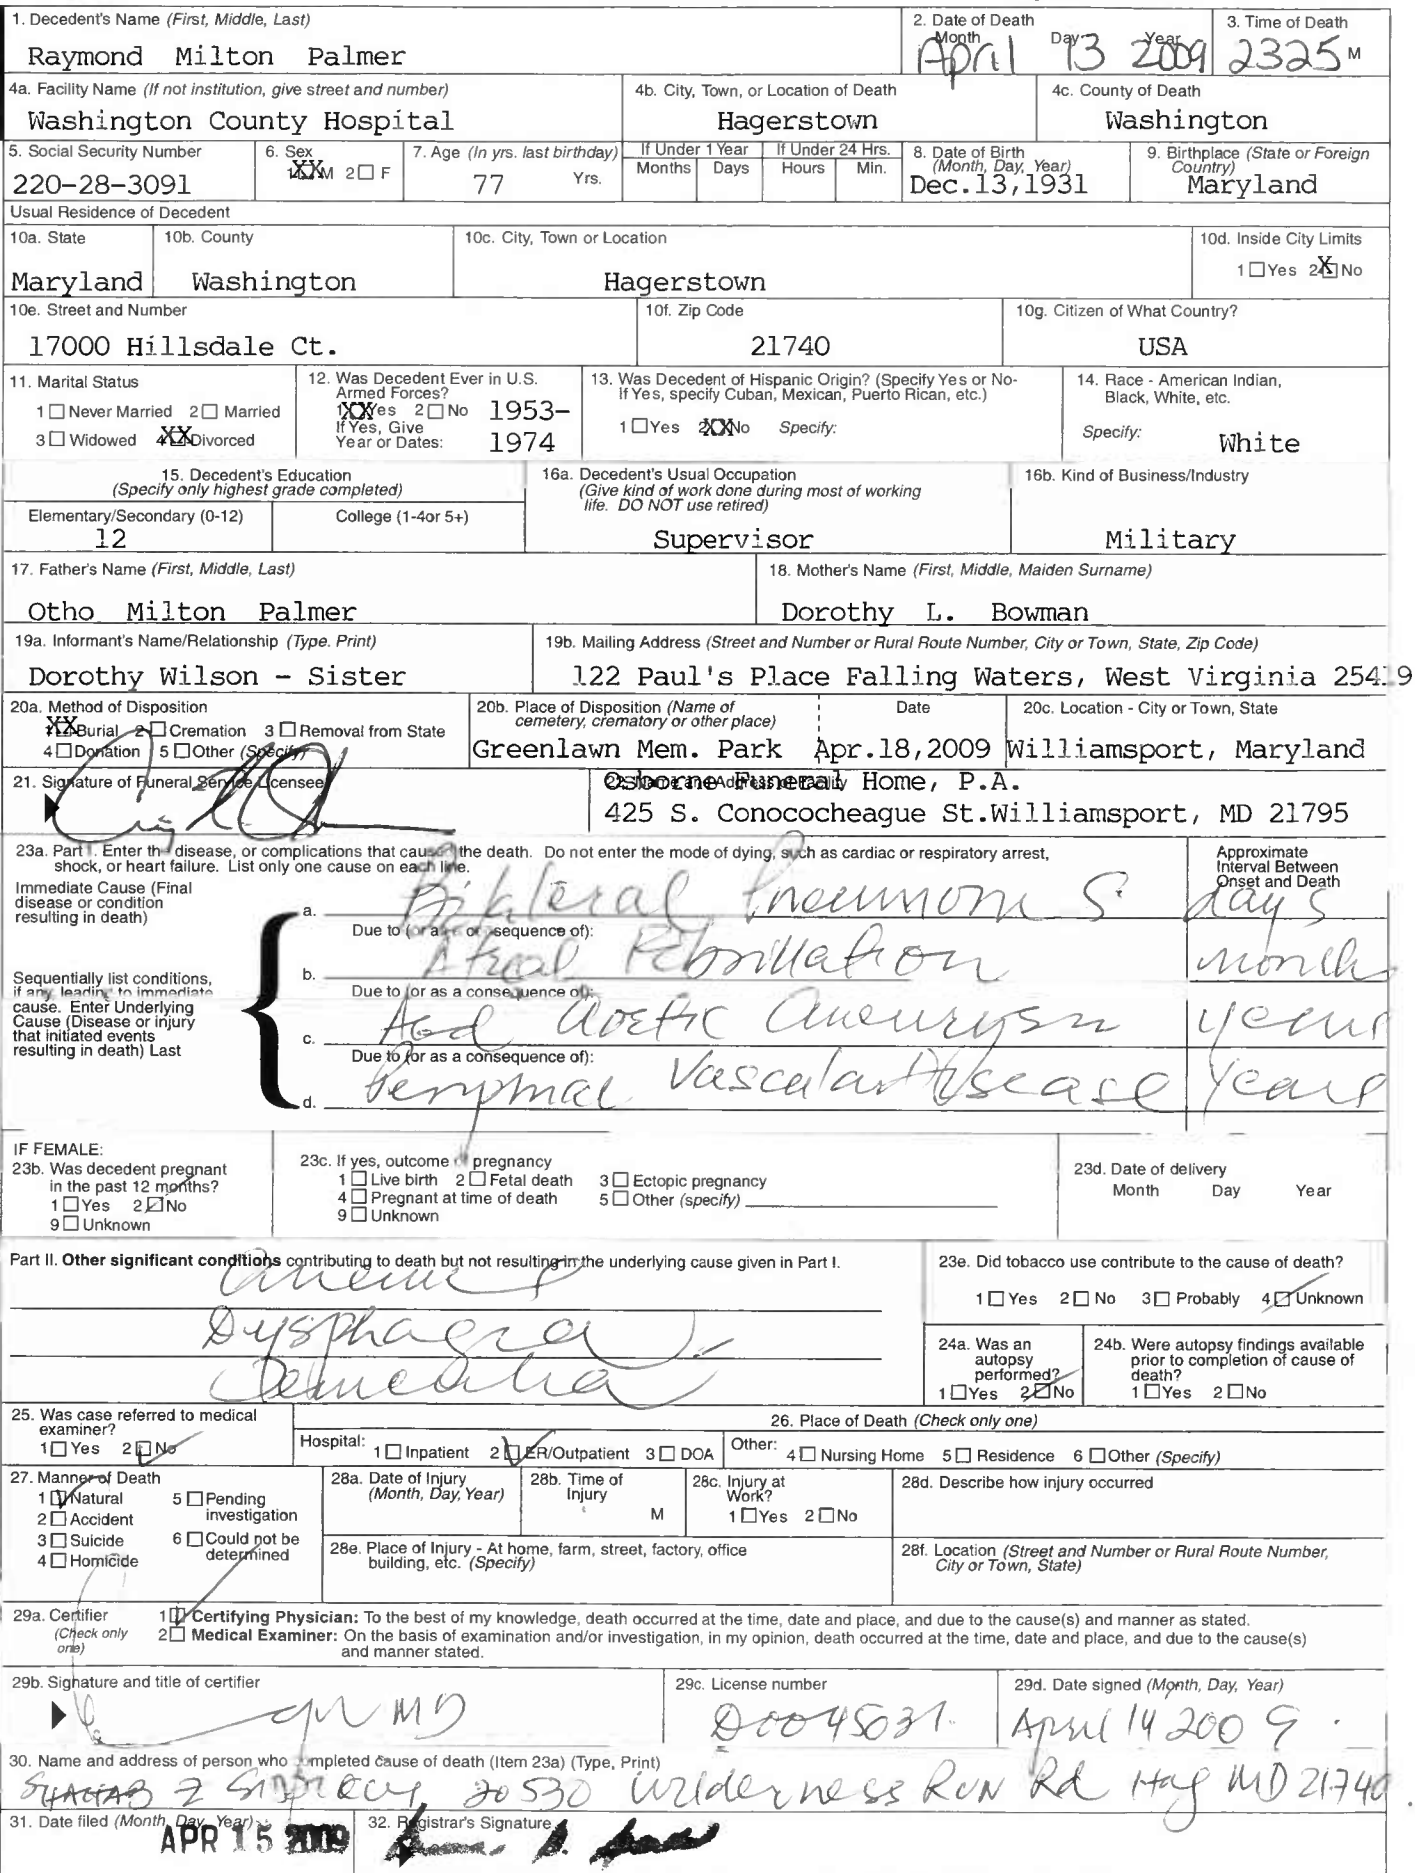 1. Decedent's Name (First, Middle, Last)
Raymond Milton Palmer
2. Date of Death
Month Day Year
April 13 2009
3. Time of Death
2325 M
4a. Facility Name (If not institution, give street and number)
Washington County Hospital
4b. City, Town, or Location of Death
Hagerstown
4c. County of Death
Washington
5. Social Security Number
220-28-3091
6. Sex
1 XX M 2 ☐ F
7. Age (In yrs. last birthday)
77 Yrs.
If Under 1 Year
Months Days
If Under 24 Hrs.
Hours Min.
8. Date of Birth
(Month, Day, Year)
Dec.13,1931
9. Birthplace (State or Foreign
Country)
Maryland
Usual Residence of Decedent
10a. State
Maryland
10b. County
Washington
10c. City, Town or Location
Hagerstown
10d. Inside City Limits
1 ☐ Yes 2 X No
10e. Street and Number
17000 Hillsdale Ct.
10f. Zip Code
21740
10g. Citizen of What Country?
USA
11. Marital Status
1 ☐ Never Married 2 ☐ Married
3 ☐ Widowed 4 XX Divorced
12. Was Decedent Ever in U.S.
Armed Forces?
1 XX Yes 2 ☐ No 1953-
If Yes, Give
Year or Dates: 1974
13. Was Decedent of Hispanic Origin? (Specify Yes or No-
If Yes, specify Cuban, Mexican, Puerto Rican, etc.)
1 ☐ Yes 2 XX No Specify:
14. Race - American Indian,
Black, White, etc.
Specify: White
15. Decedent's Education
(Specify only highest grade completed)
Elementary/Secondary (0-12)
12
College (1-4or 5+)
16a. Decedent's Usual Occupation
(Give kind of work done during most of working
life. DO NOT use retired)
Supervisor
16b. Kind of Business/Industry
Military
17. Father's Name (First, Middle, Last)
Otho Milton Palmer
18. Mother's Name (First, Middle, Maiden Surname)
Dorothy L. Bowman
19a. Informant's Name/Relationship (Type. Print)
Dorothy Wilson - Sister
19b. Mailing Address (Street and Number or Rural Route Number, City or Town, State, Zip Code)
122 Paul's Place Falling Waters, West Virginia 25419
20a. Method of Disposition
XX Burial 2 ☐ Cremation 3 ☐ Removal from State
4 ☐ Donation 5 ☐ Other (Specify)
20b. Place of Disposition (Name of
cemetery, crematory or other place)
Greenlawn Mem. Park
Date
Apr.18,2009
20c. Location - City or Town, State
Williamsport, Maryland
21. Signature of Funeral Service Licensee
22. Name and Address of Facility
Osborne Funeral Home, P.A.
425 S. Conococheague St.Williamsport, MD 21795
23a. Part I. Enter the disease, or complications that caused the death. Do not enter the mode of dying, such as cardiac or respiratory arrest,
shock, or heart failure. List only one cause on each line.
Approximate
Interval Between
Onset and Death
Immediate Cause (Final
disease or condition
resulting in death)
a. Bilateral Pneumonis days
Due to (or as a consequence of):
Sequentially list conditions,
if any, leading to immediate
cause. Enter Underlying
Cause (Disease or injury
that initiated events
resulting in death) Last
b. Atrial Fibrillation months
Due to (or as a consequence of):
c. Aortic Aneurysm years
Due to (or as a consequence of):
d. Vascular Disease years
IF FEMALE:
23b. Was decedent pregnant
in the past 12 months?
1 ☐ Yes 2 ☑ No
9 ☐ Unknown
23c. If yes, outcome of pregnancy
1 ☐ Live birth 2 ☐ Fetal death 3 ☐ Ectopic pregnancy
4 ☐ Pregnant at time of death 5 ☐ Other (specify)
9 ☐ Unknown
23d. Date of delivery
Month Day Year
Part II. Other significant conditions contributing to death but not resulting in the underlying cause given in Part I.
Anemia
Dysphagia
Dementia
23e. Did tobacco use contribute to the cause of death?
1 ☐ Yes 2 ☐ No 3 ☐ Probably 4 ☑ Unknown
24a. Was an
autopsy
performed?
1 ☐ Yes 2 ☑ No
24b. Were autopsy findings available
prior to completion of cause of
death?
1 ☐ Yes 2 ☐ No
25. Was case referred to medical
examiner?
1 ☐ Yes 2 ☑ No
26. Place of Death (Check only one)
Hospital: 1 ☐ Inpatient 2 ☑ ER/Outpatient 3 ☐ DOA
Other: 4 ☐ Nursing Home 5 ☐ Residence 6 ☐ Other (Specify)
27. Manner of Death
1 ☑ Natural 5 ☐ Pending
investigation
2 ☐ Accident
3 ☐ Suicide 6 ☐ Could not be
determined
4 ☐ Homicide
28a. Date of Injury
(Month, Day, Year)
28b. Time of
Injury
M
28c. Injury at
Work?
1 ☐ Yes 2 ☐ No
28d. Describe how injury occurred
28e. Place of Injury - At home, farm, street, factory, office
building, etc. (Specify)
28f. Location (Street and Number or Rural Route Number,
City or Town, State)
29a. Certifier
(Check only
one)
1 ☑ Certifying Physician: To the best of my knowledge, death occurred at the time, date and place, and due to the cause(s) and manner as stated.
2 ☐ Medical Examiner: On the basis of examination and/or investigation, in my opinion, death occurred at the time, date and place, and due to the cause(s)
and manner stated.
29b. Signature and title of certifier
MD
29c. License number
D0045031
29d. Date signed (Month, Day, Year)
April 14 2009
30. Name and address of person who completed cause of death (Item 23a) (Type, Print)
20530 Wilderness Run Rd Hag MD 21740
31. Date filed (Month, Day, Year)
APR 15 2009
32. Registrar's Signature